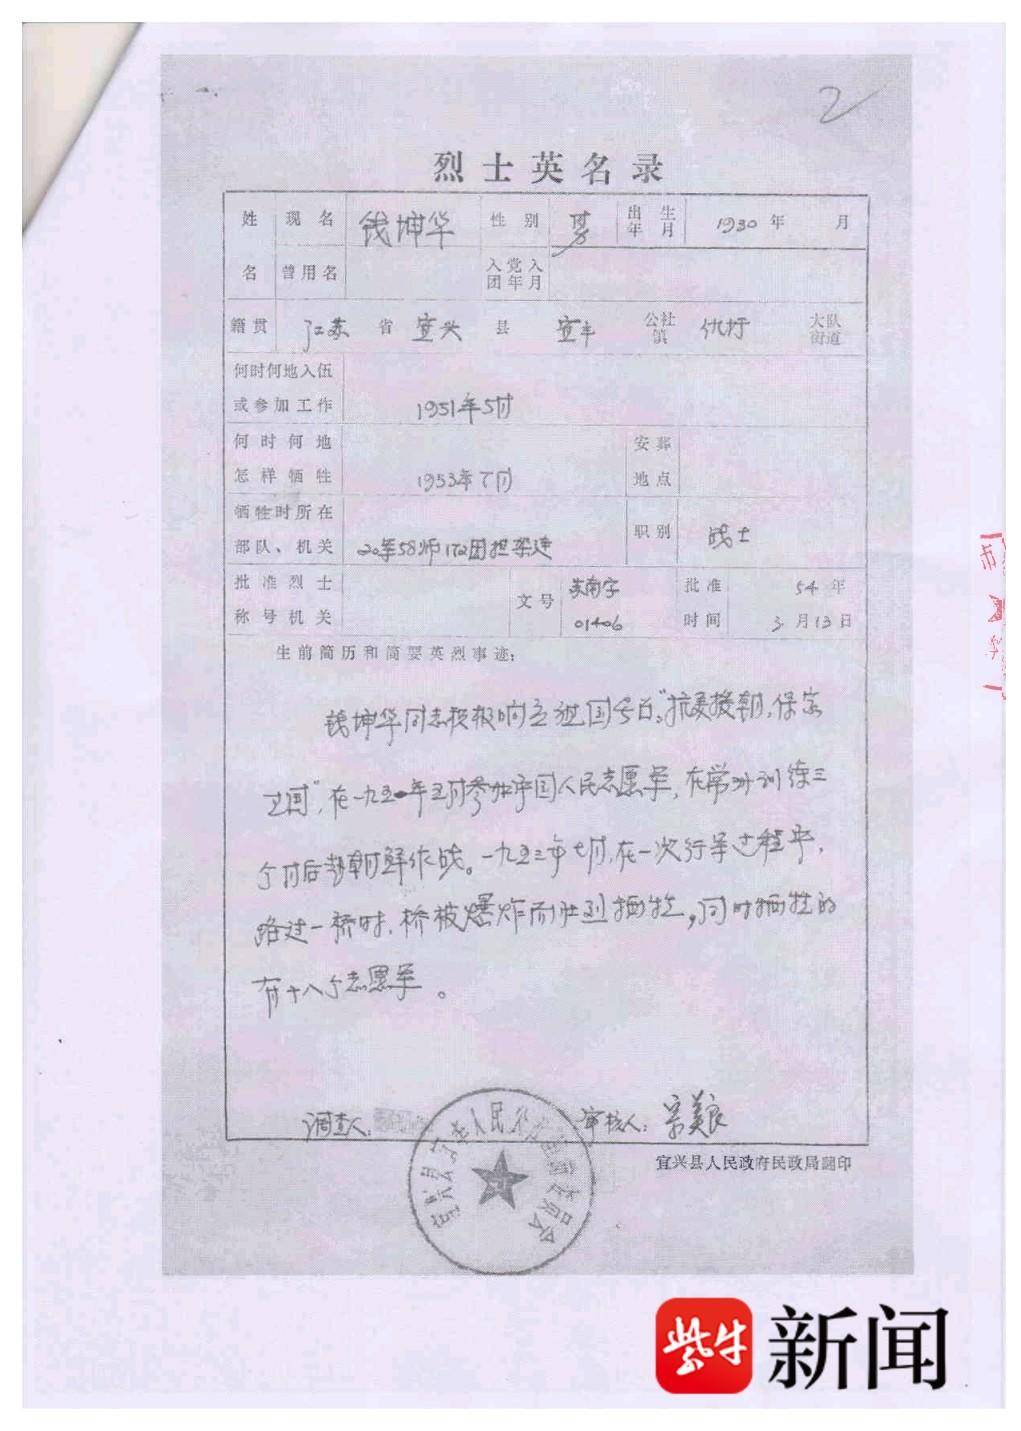 2
烈士英名录
姓 现名 钱坤华 性别 男 出生年月 1930年 月
名 曾用名 入党入团年月
籍贯 江苏 省 宜兴 县 宜丰 公社镇 仇圩 大队街道
何时何地入伍
或参加工作 1951年5月
何时何地 安葬
怎样牺牲 1953年7月 地点
牺牲时所在
部队、机关 20军58师172团担架连 职别 战士
批准烈士 文号 苏南字 批准 54年
称号机关 01406 时间 3月13日
生前简历和简要英烈事迹:
钱坤华同志积极响应祖国号召"抗美援朝,保家
卫国",在一九五一年五月参加中国人民志愿军,在常州训练三
个月后赴朝鲜作战。一九五三年七月,在一次行军过程中,
路过一桥时,桥被爆炸而壮烈牺牲,同时牺牲的
有十八个志愿军。
调查人: 审核人:宗美良
宜兴县人民政府民政局翻印
紫牛 新闻